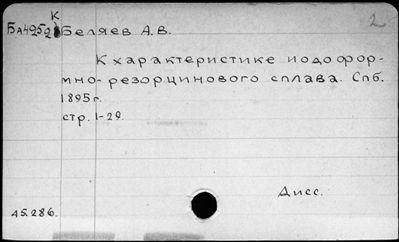 К
Ба4252 Беляев А.В.
2
К характеристике иодофор-
мно-резорцинового сплава. Спб.
1895г.
стр. 1-29.
Дисс.
45.286.